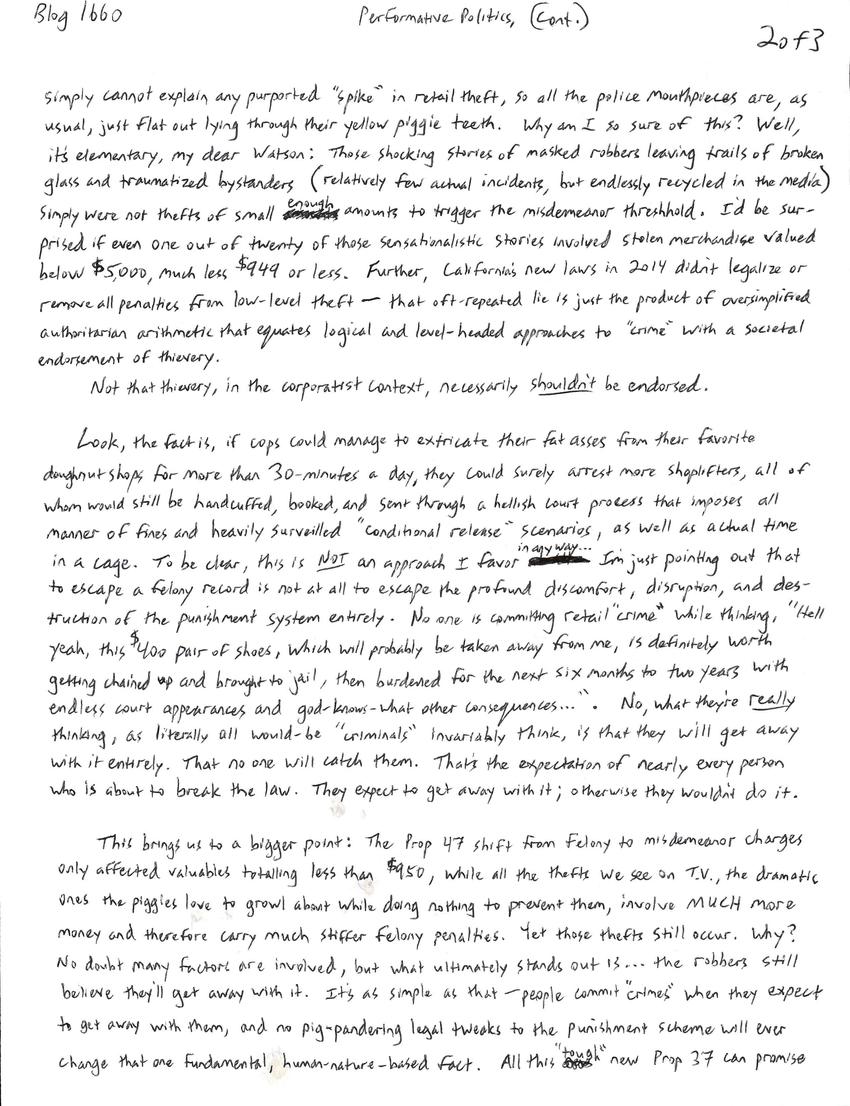 Blog 1660
Performative Politics, (Cont.)
2 of 3
simply cannot explain any purported "spike" in retail theft, so all the police mouthpieces are, as
usual, just flat out lying through their yellow piggie teeth. Why am I so sure of this? Well,
it's elementary, my dear Watson: Those shocking stories of masked robbers leaving trails of broken
glass and traumatized bystanders (relatively few actual incidents, but endlessly recycled in the media)
simply were not thefts of small enough amounts to trigger the misdemeanor threshhold. I'd be sur-
prised if even one out of twenty of those sensationalistic stories involved stolen merchandise valued
below $5,000, much less $949 or less. Further, California's new laws in 2014 didn't legalize or
remove all penalties from low-level theft — that oft-repeated lie is just the product of oversimplified
authoritarian arithmetic that equates logical and level-headed approaches to "crime" with a societal
endorsement of thievery.
Not that thievery, in the corporatist context, necessarily shouldn't be endorsed.
Look, the fact is, if cops could manage to extricate their fat asses from their favorite
doughnut shops for more than 30-minutes a day, they could surely arrest more shoplifters, all of
whom would still be handcuffed, booked, and sent through a hellish court process that imposes all
manner of fines and heavily surveilled "conditional release" scenarios, as well as actual time
in a cage. To be clear, this is NOT an approach I favor in any way... I'm just pointing out that
to escape a felony record is not at all to escape the profound discomfort, disruption, and des-
truction of the punishment system entirely. No one is committing retail "crime" while thinking, "Hell
yeah, this $400 pair of shoes, which will probably be taken away from me, is definitely worth
getting chained up and brought to jail, then burdened for the next six months to two years with
endless court appearances and god-knows-what other consequences...". No, what they're really
thinking, as literally all would-be "criminals" invariably think, is that they will get away
with it entirely. That no one will catch them. That's the expectation of nearly every person
who is about to break the law. They expect to get away with it; otherwise they wouldn't do it.
This brings us to a bigger point: The Prop 47 shift from felony to misdemeanor charges
only affected valuables totalling less than $950, while all the thefts we see on T.V., the dramatic
ones the piggies love to growl about while doing nothing to prevent them, involve MUCH more
money and therefore carry much stiffer felony penalties. Yet those thefts still occur. Why?
No doubt many factors are involved, but what ultimately stands out is... the robbers still
believe they'll get away with it. It's as simple as that — people commit "crimes" when they expect
to get away with them, and no pig-pandering legal tweaks to the punishment scheme will ever
change that one fundamental, human-nature-based fact. All this "tough" new Prop 37 can promise